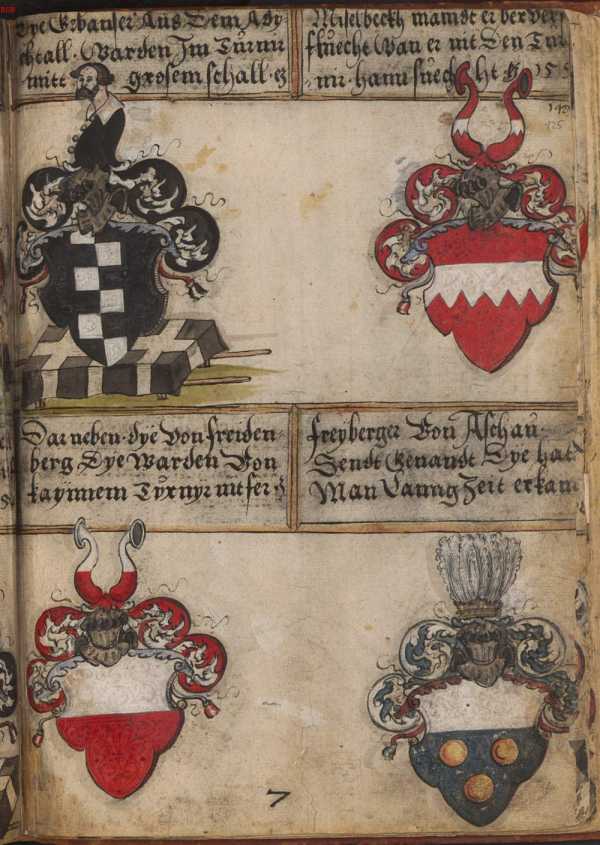 Dye Erbanser Aus Dem Ady
chtall. Warden Im Turnir
mitt grosem schall.
Miselbeckh mamst er
fluecht Wan er nit Den Tur
nir. hann suecht
Darneben. dye Von freiden
berg Dye Warden Von
kayinem Tyrnyr nit fer
freyberger Von Aschau.
Sendt Genandt Dye hat
Man Lanng Zeit erkan
7